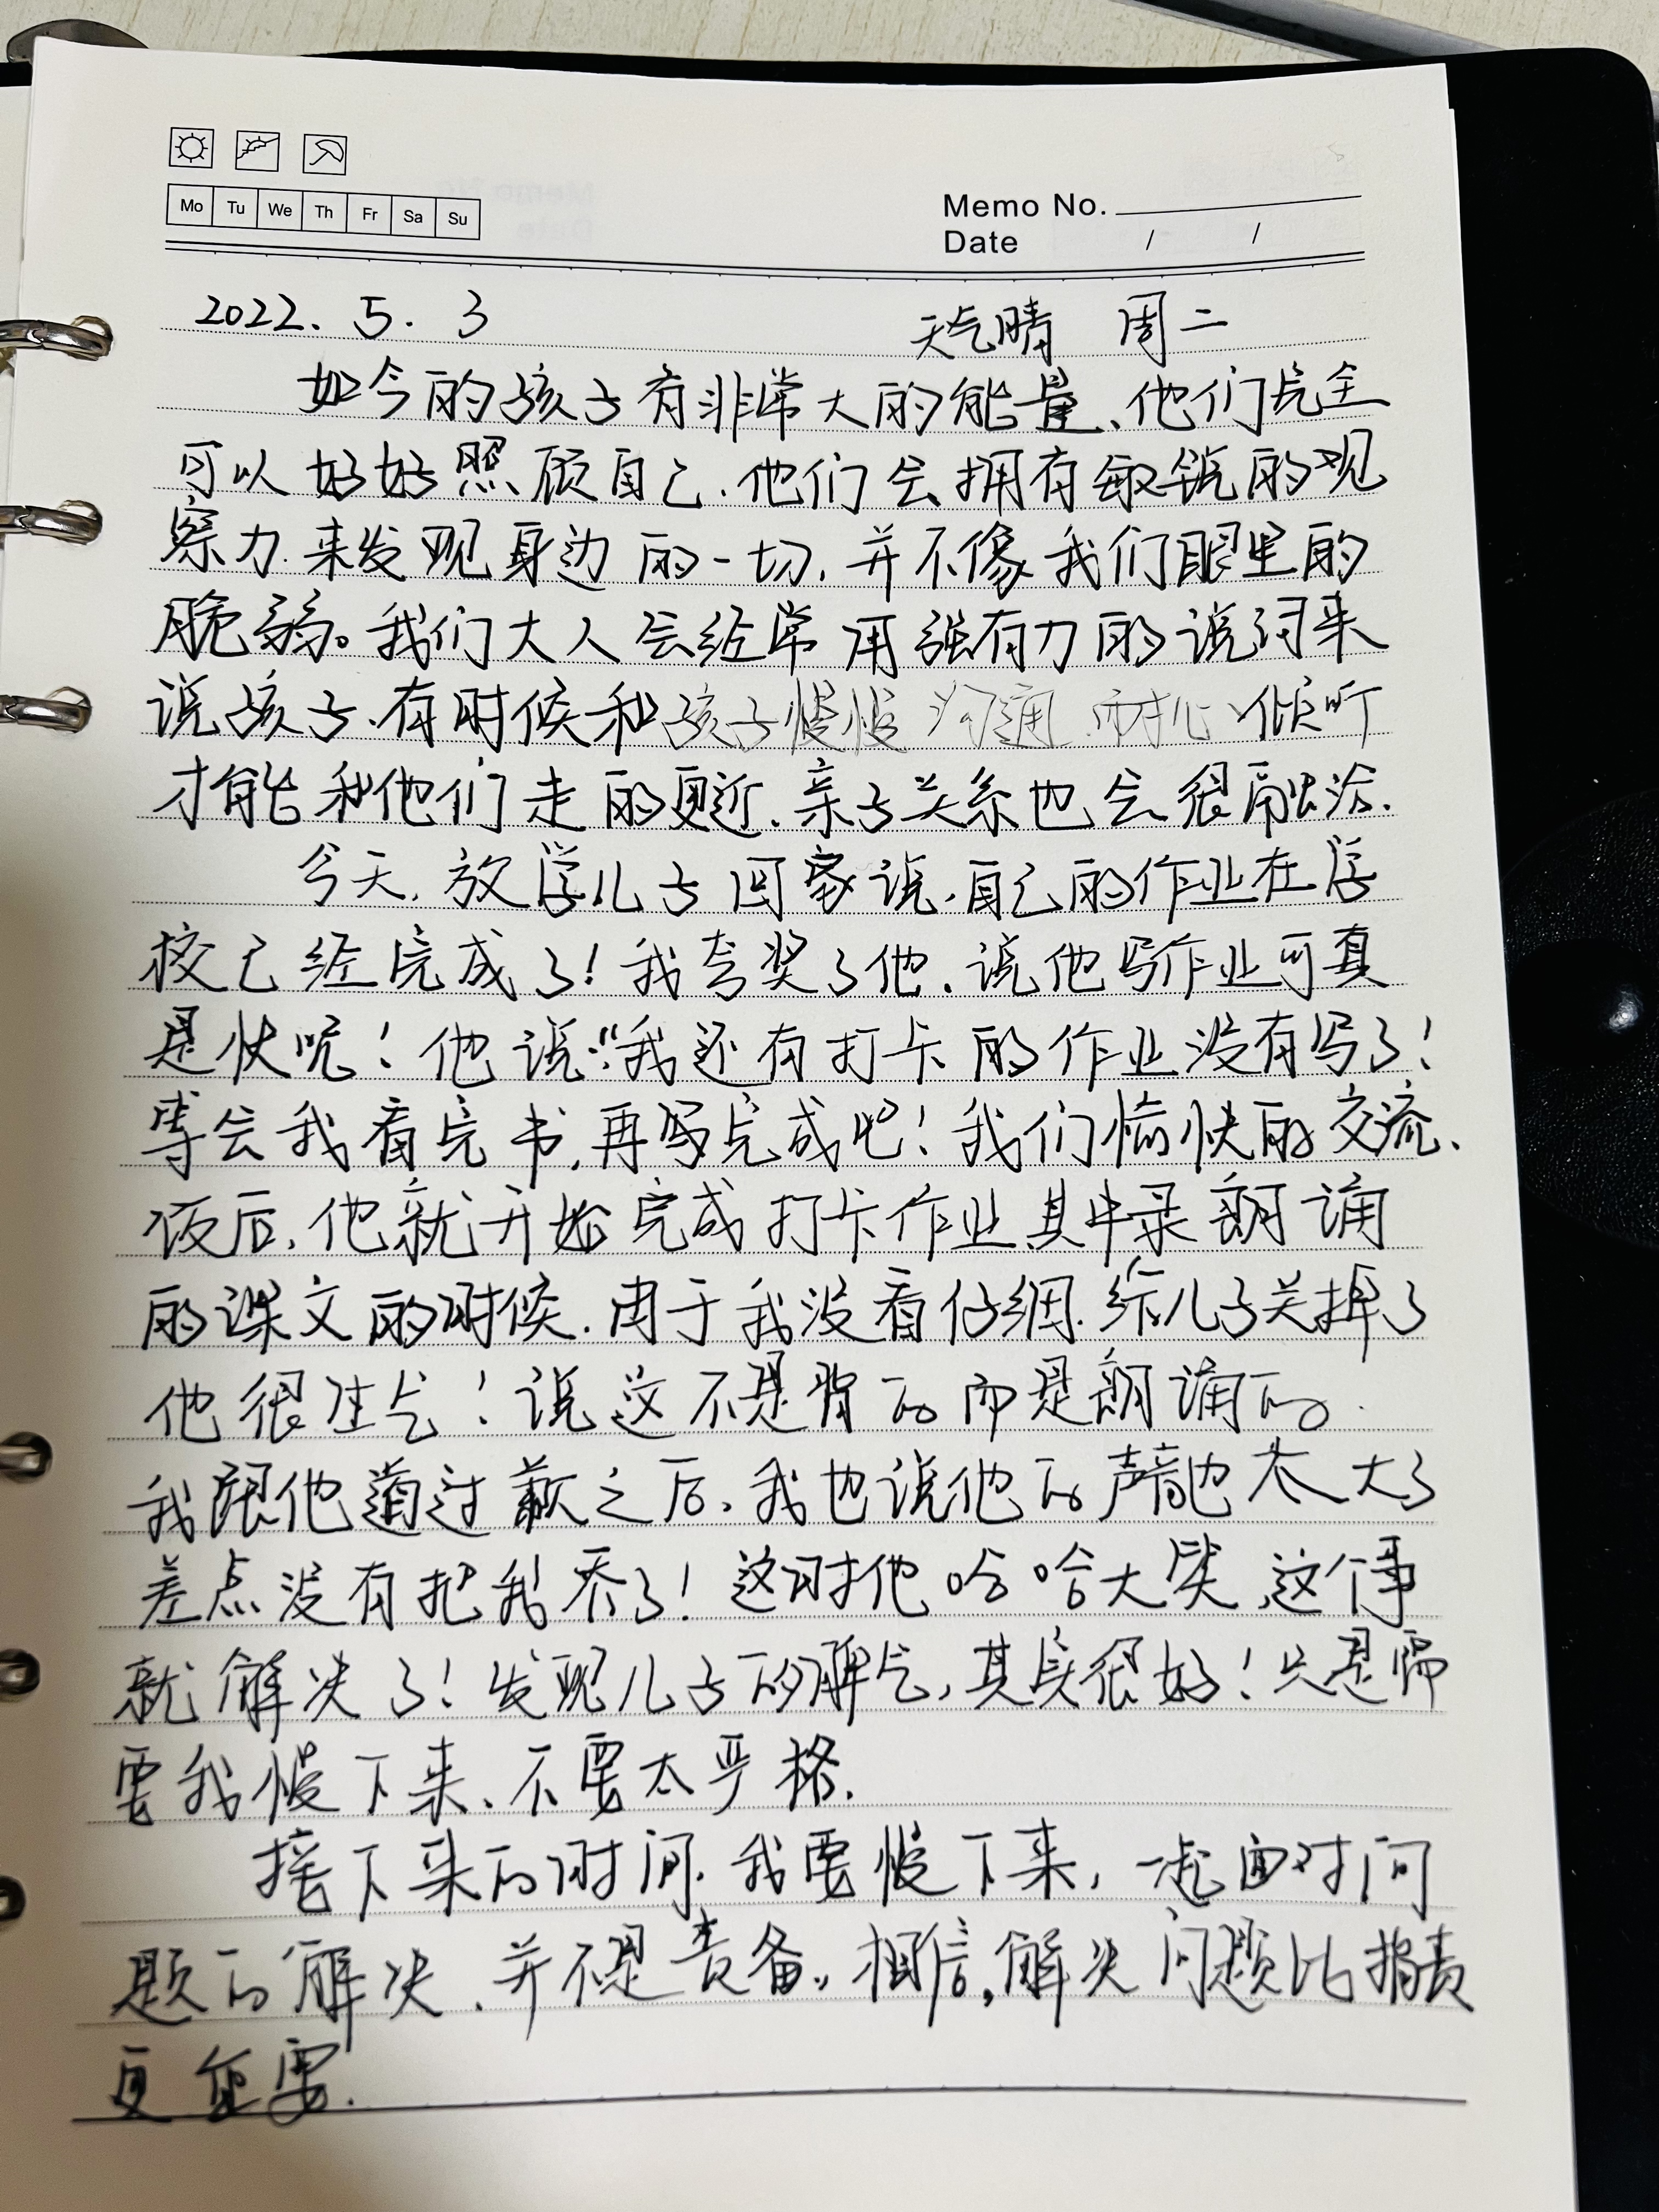 Mo Tu We Th Fr Sa Su
Memo No.
Date / /
2022. 5. 3 天气晴 周二
如今的孩子有非常大的能量、他们完全
可以好好照顾自己.他们会拥有敏锐的观
察力.来发现身边的一切,并不像我们眼里的
脆弱。我们大人会经常用强有力的说词来
说孩子、有时候和孩子慢慢沟通、耐心倾听
才能和他们走的更近、亲子关系也会很融洽.
今天,放学儿子回家说,自己的作业在学
校已经完成了!我夸奖了他、说他写作业可真
是快呢!他说:“我还有打卡的作业没有写了!
等会我看完书,再写完成吧!我们愉快的交流、
饭后,他就开始完成打卡作业其中录朗诵
的课文的时候.由于我没看仔细.给儿子关掉了
他很生气!说这不是背的而是朗诵的.
我跟他道过歉之后、我也说他的声音也太大了
差点没有把我吞了!这时他哈哈大笑,这个事
就解决了!发现儿子的脾气,其实很好!只是需
要我慢下来、不要太严格.
接下来的时间.我要慢下来,一起面对问
题的解决、并不是责备,相信,解决问题比指责
更重要.